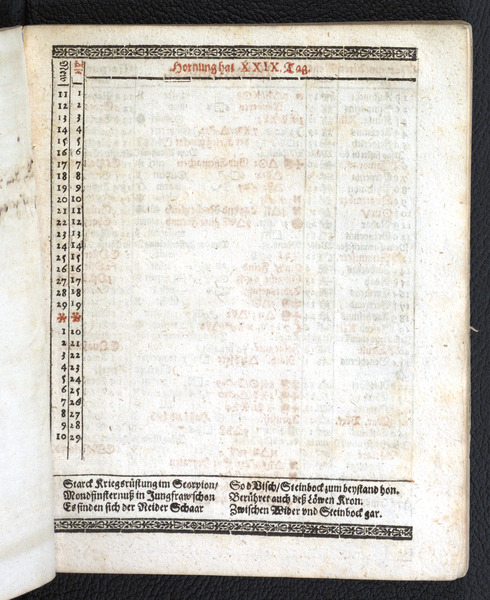 Hornung hat XXIX. Tag.
11 1
12 2
13 3
14 4
15 5
16 6
17 7
18 8
19 9
20 10
21 11
22 12
23 13
24 14
25 15
26 16
27 17
28 18
29 19
1 20
2 21
3 22
4 23
5 24
6 25
7 26
8 27
9 28
10 29
Starck Kriegsrüstung im Scorpion/ So d Visch/Steinbock zum beystand hon.
Mondfinsternuß in Jungfraw schon Berühret auch deß Löwen Kron.
Es finden sich der Neider Schaar Zwischen Wider vnd Steinbock gar.